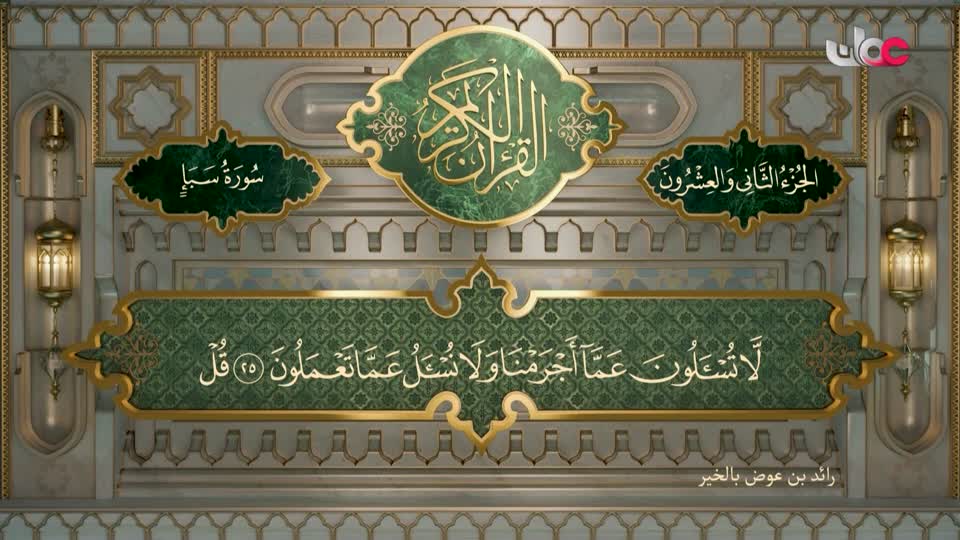 عمان
القرءان الكريم
الجُزْءُ الثَّانِي وَالعِشْرُونَ
سُورَةُ سَبَإٍ
لَّا تُسْـَٔلُونَ عَمَّآ أَجْرَمْنَا وَلَا نُسْـَٔلُ عَمَّا تَعْمَلُونَ ٢٥ قُلْ
رائد بن عوض بالخير